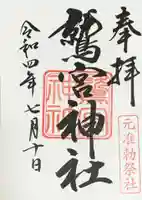 奉拝
鷲宮神社
令和四年七月十日
元准勅祭社